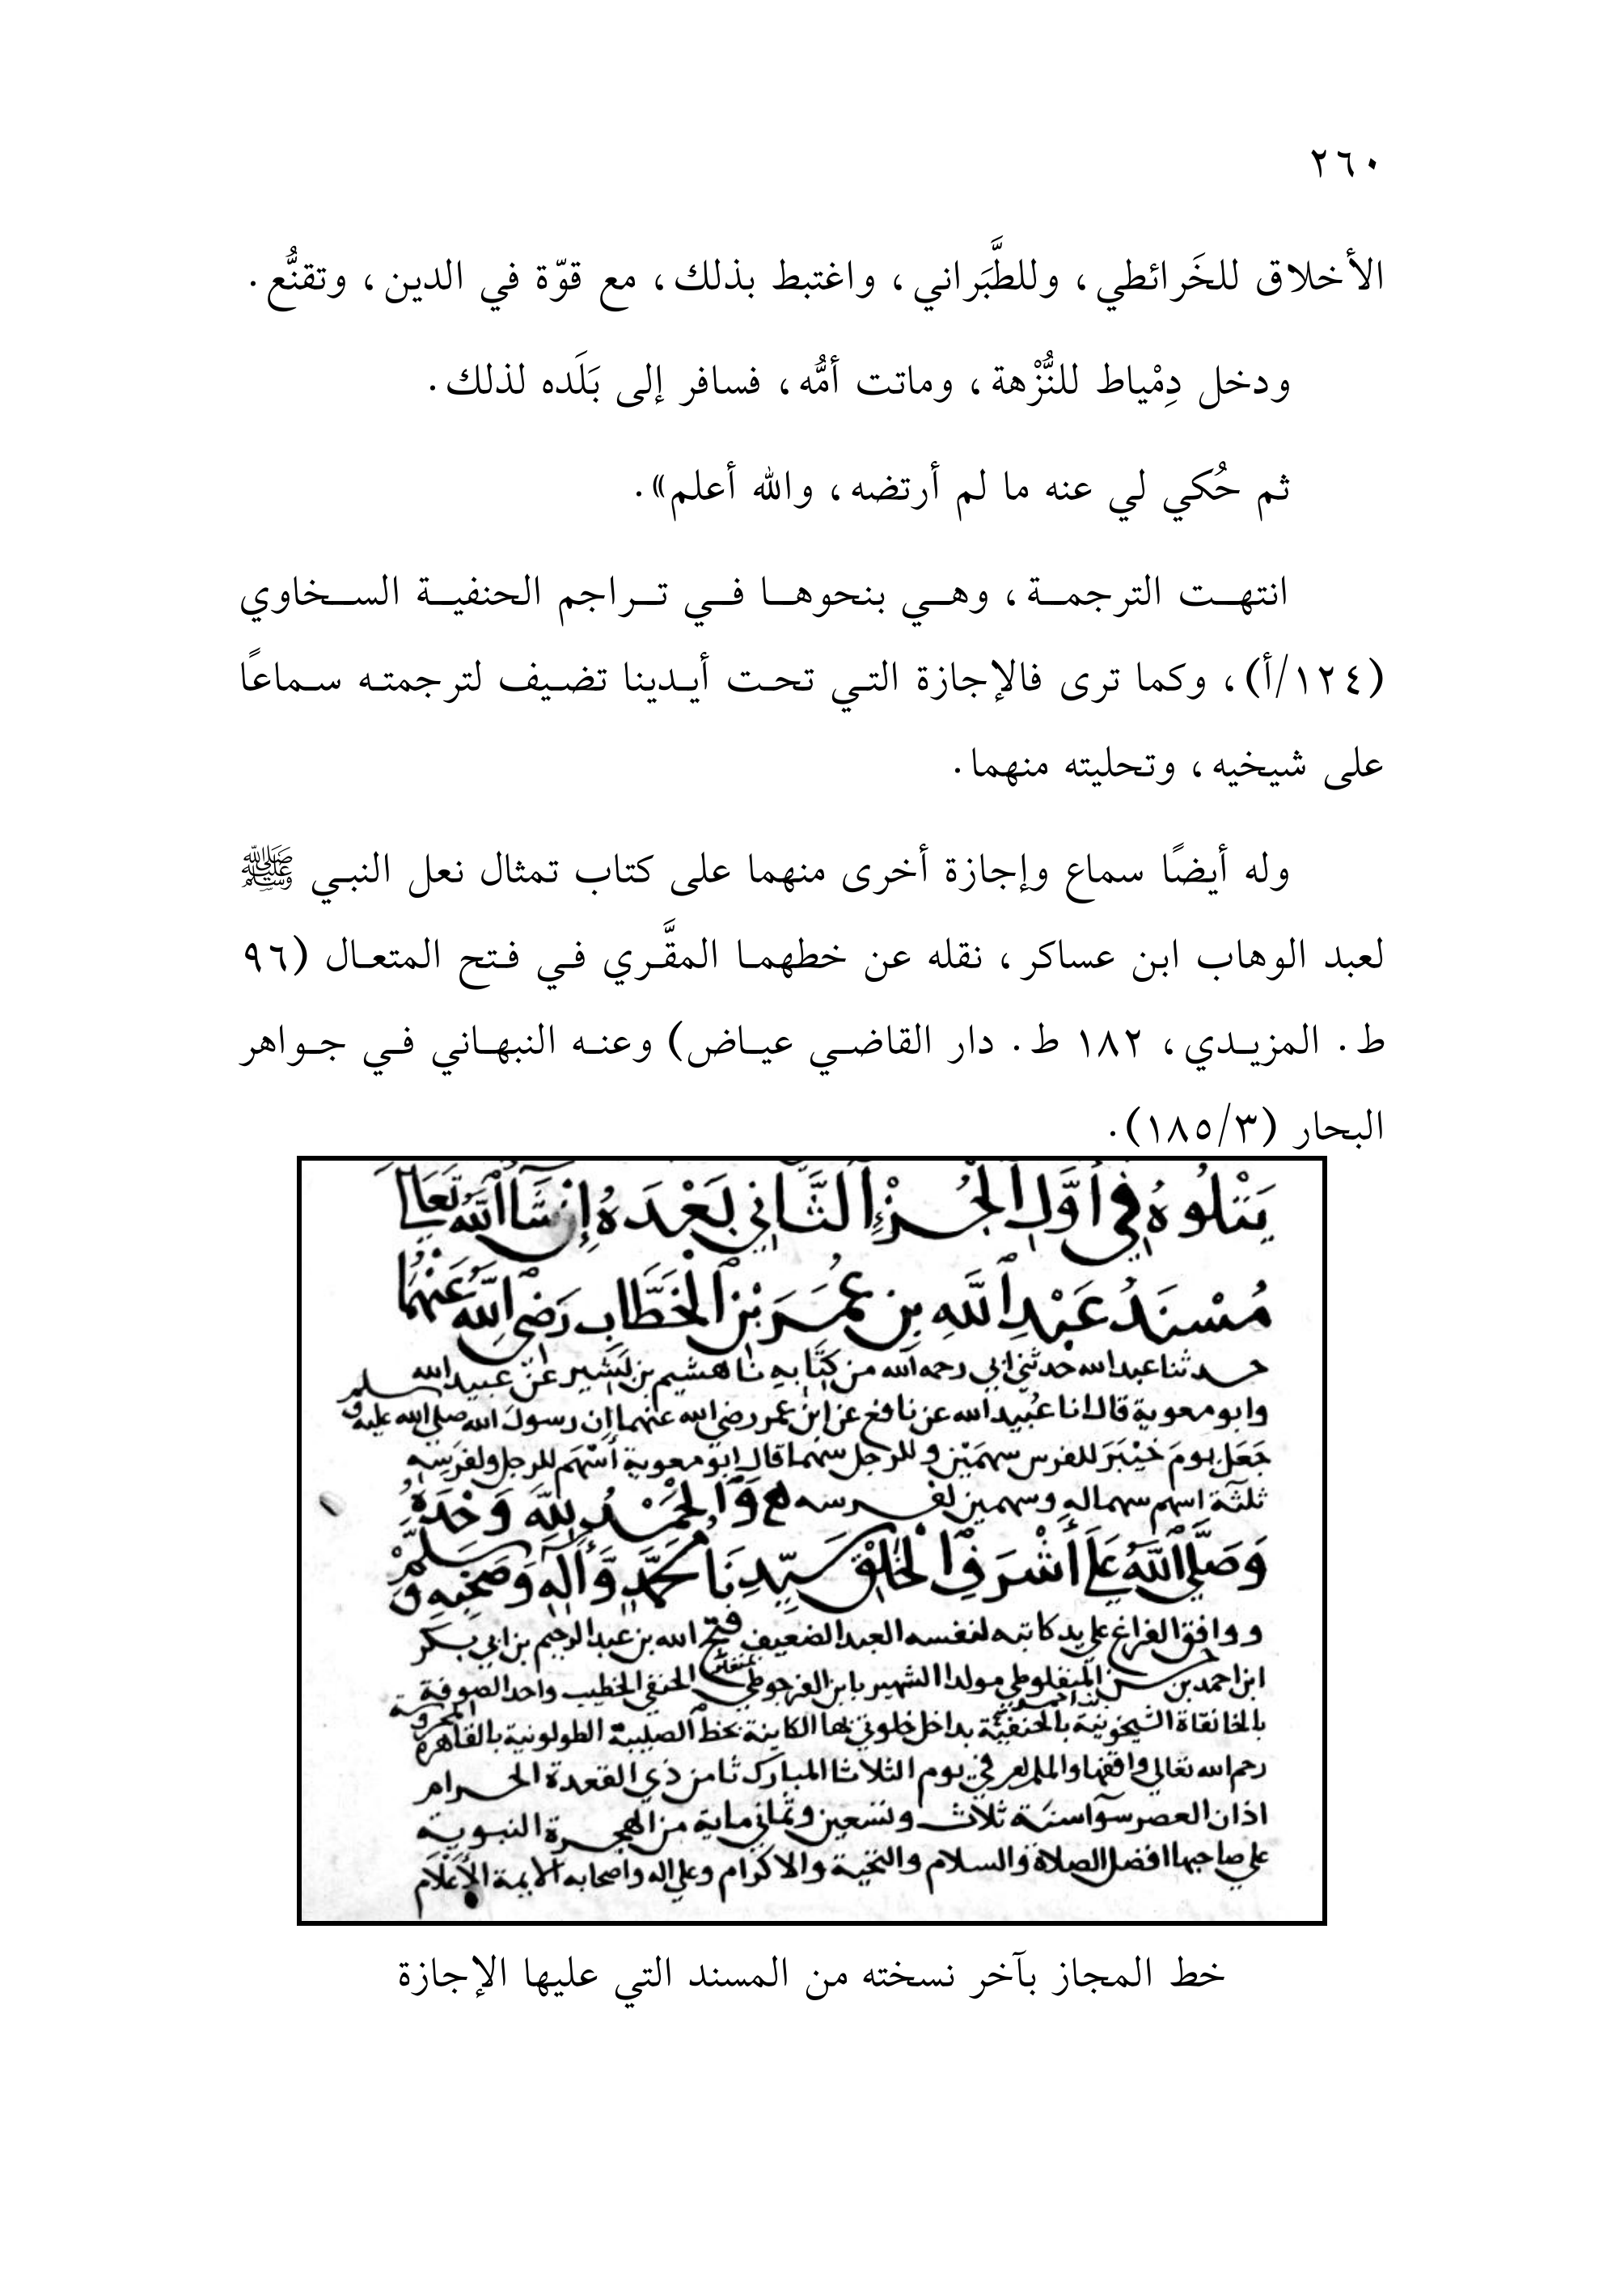 ٢٦٠
الأخلاق للخَرائطي، وللطَّبَراني، واغتبط بذلك، مع قوّة في الدين، وتقنُّع.
ودخل دِمْياط للنُّزْهة، وماتت أمُّه، فسافر إلى بَلَده لذلك.
ثم حُكي لي عنه ما لم أرتضه، والله أعلم».
انتهت الترجمة، وهي بنحوها في تراجم الحنفية السخاوي
(١٢٤/أ)، وكما ترى فالإجازة التي تحت أيدينا تضيف لترجمته سماعًا
على شيخيه، وتحليته منهما.
وله أيضًا سماع وإجازة أخرى منهما على كتاب تمثال نعل النبي ﷺ
لعبد الوهاب ابن عساكر، نقله عن خطهما المقَّري في فتح المتعال (٩٦
ط. المزيدي، ١٨٢ ط. دار القاضي عياض) وعنه النبهاني في جواهر
البحار (١٨٥/٣).
يَتْلُوهُ فِي أَوَّلِ الْجُزْءِ الثَّانِي بَعْدَهُ إِنْ شَاالله تَعَالَى
مُسْنَدُ عَبْدِ اللَّهِ بنِ عُمَرَ بْنِ الْخَطَّابِ رَضِيَ اللَّهُ عَنْهُمَا
حدثنا عبد الله حدثني ابي رحمه الله من كتابه نا هشيم بن بشير عن عبيد الله
وابو معوية قال انا عبيد الله عن نافع عن ابن عمر رضي الله عنهما ان رسول الله صلى الله عليه وسلم
جَعَل يومَ خَيْبَرَ للفرس سهمَيْن وللرجل سهما قال ابو معوية أسْهَم للرجل ولفرسه
ثلثة اسهم سهما له وسهمين لفرسه وَالْحَمْدُ لِلَّهِ وَحْدَهُ
وَصَلَّى اللَّهُ عَلَى أَشْرَفِ الْخَلْقِ سَيِّدِنَا مُحَمَّدٍ وَآلِهِ وَصَحْبِهِ وَسَلَّمْ
ووافق الفراغ على يد كاتبه لنفسه العبد الضعيف فتح الله بن عبد الرحيم بن ابي بكر
ابن احمد بن حسن المنفلوطي مولدا الشهير بابن الفرجوطي الحنفي الخطيب واحد الصوفة
بالخانقاة الشيخونية بالحنفية بداخل خلوتي بها الكاينة بخط الصليبة الطولونية بالقاهرة المحروسة
رحم الله تعالى واقفها في يوم الثلاثا المبارك ثامن ذي القعدة الحرام
اذان العصر سوا سنة ثلاث وتسعين وثماني ماية من الهجرة النبوية
على صاحبها افضل الصلاة والسلام والتحية والاكرام وعلى اله واصحابه الايمة الأعلام
خط المجاز بآخر نسخته من المسند التي عليها الإجازة